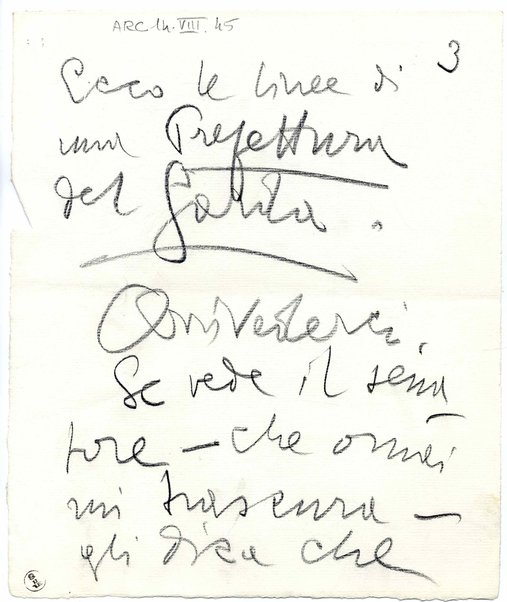 ARC 14. VIII. 45
3
Ecco le linee di
una Prefettura
del Garda.
Arrivederci.
Se vede il sena
tore – che ormai
mi trascura –
gli dica che